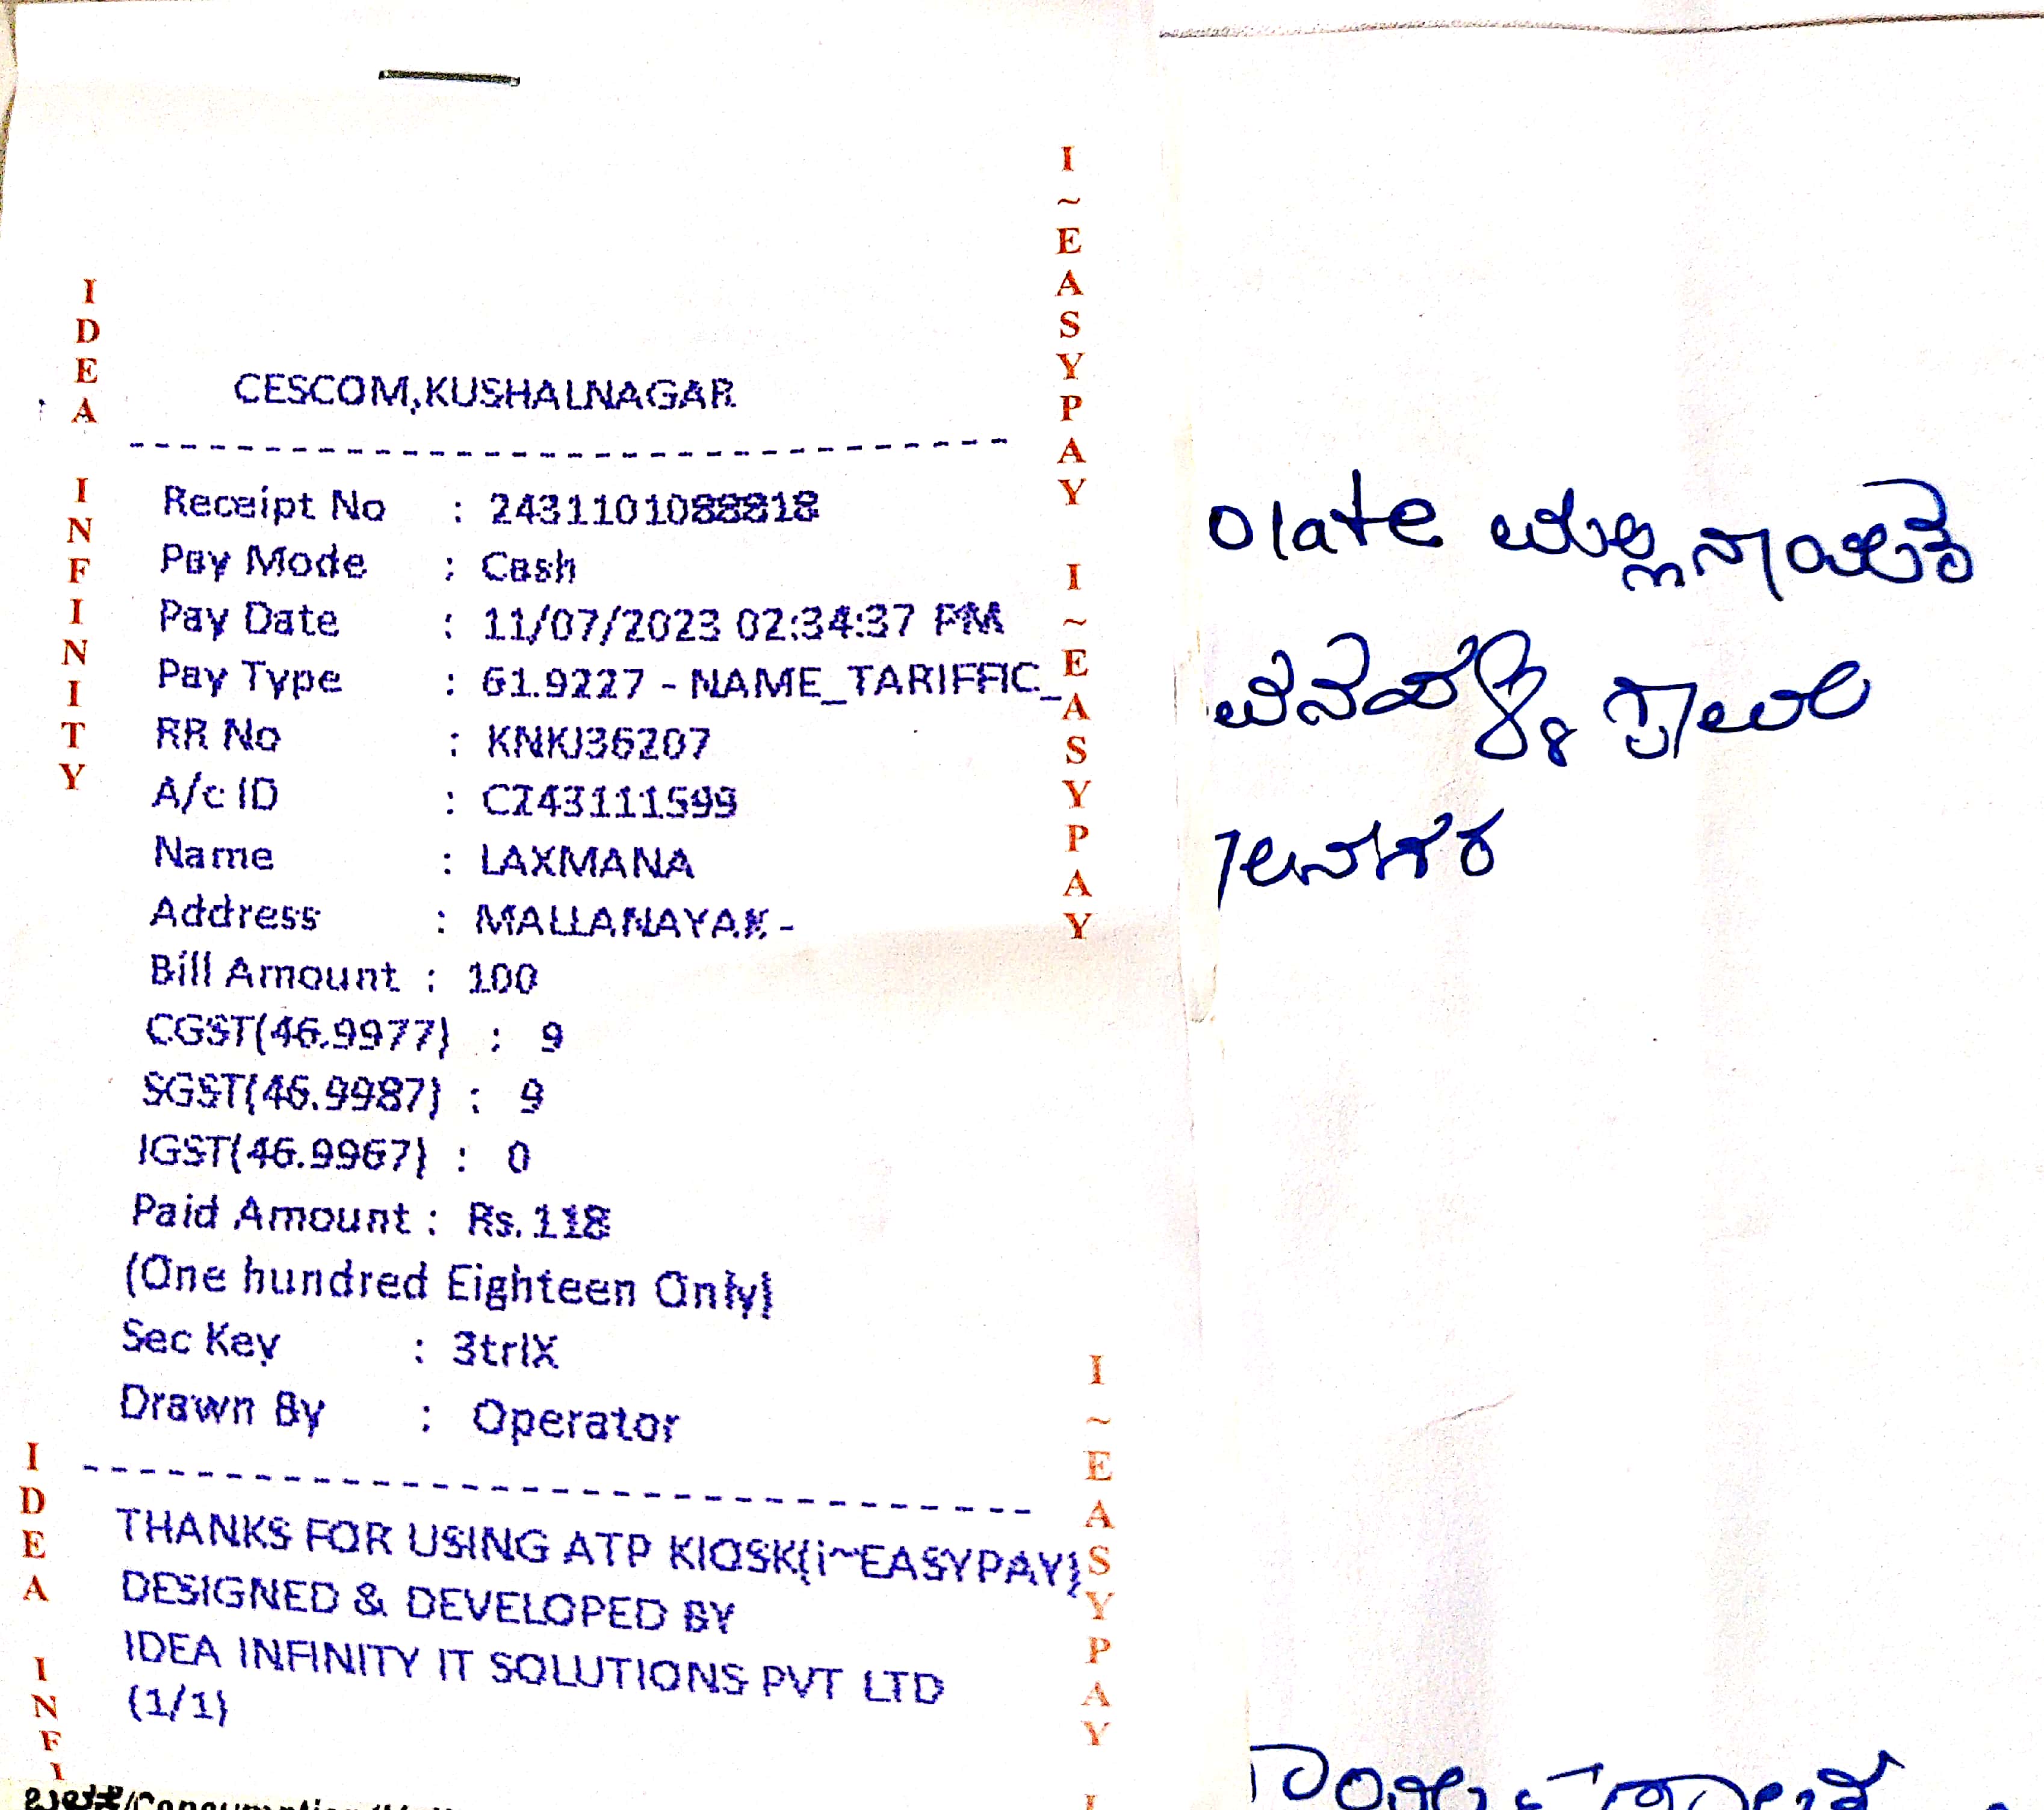 CESCOM,KUSHALNAGAR
Receipt No : 2431101088818
Pay Mode : Cash
Pay Date : 11/07/2023 02:34:37 PM
Pay Type : 61.9227 - NAME_TARIFFIC_
RR No : KNKJ36207
A/c ID : C243111599
Name : LAXMANA
Address : MALLANAYAK -
Bill Amount : 100
CGST(46.9977) : 9
SGST(46.9987) : 9
IGST(46.9967) : 0
Paid Amount : Rs. 118
(One hundred Eighteen Only)
Sec Key : 3trIX
Drawn By : Operator
THANKS FOR USING ATP KIOSK(i~EASYPAY)
DESIGNED & DEVELOPED BY
IDEA INFINITY IT SOLUTIONS PVT LTD
(1/1)
IDEA INFINITY
IDEA INFI
I~EASYPAY I~EASYPAY
I~EASYPAY I
olate ಮಲ್ಲನಾಯಕ
ಗ್ರಾಮ